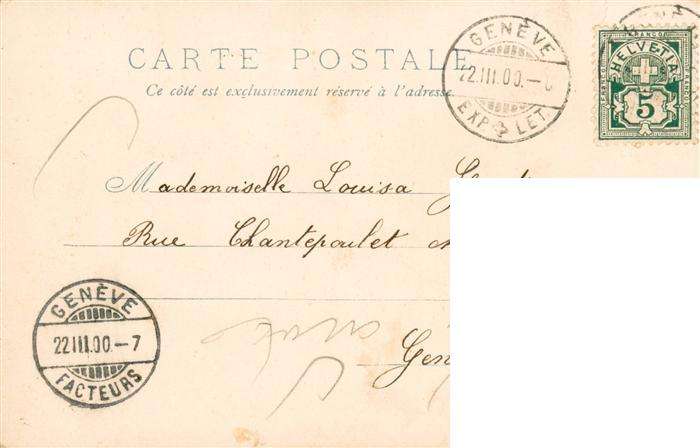 CARTE POSTALE
Ce côté est exclusivement réservé à l'adresse
GENÈVE
22.III.00.–
EXP. LET.
FRANCO
HELVETIA
5
Mademoiselle Louisa
Rue Chantepoulet
GENÈVE
22.III.00.–7
FACTEURS